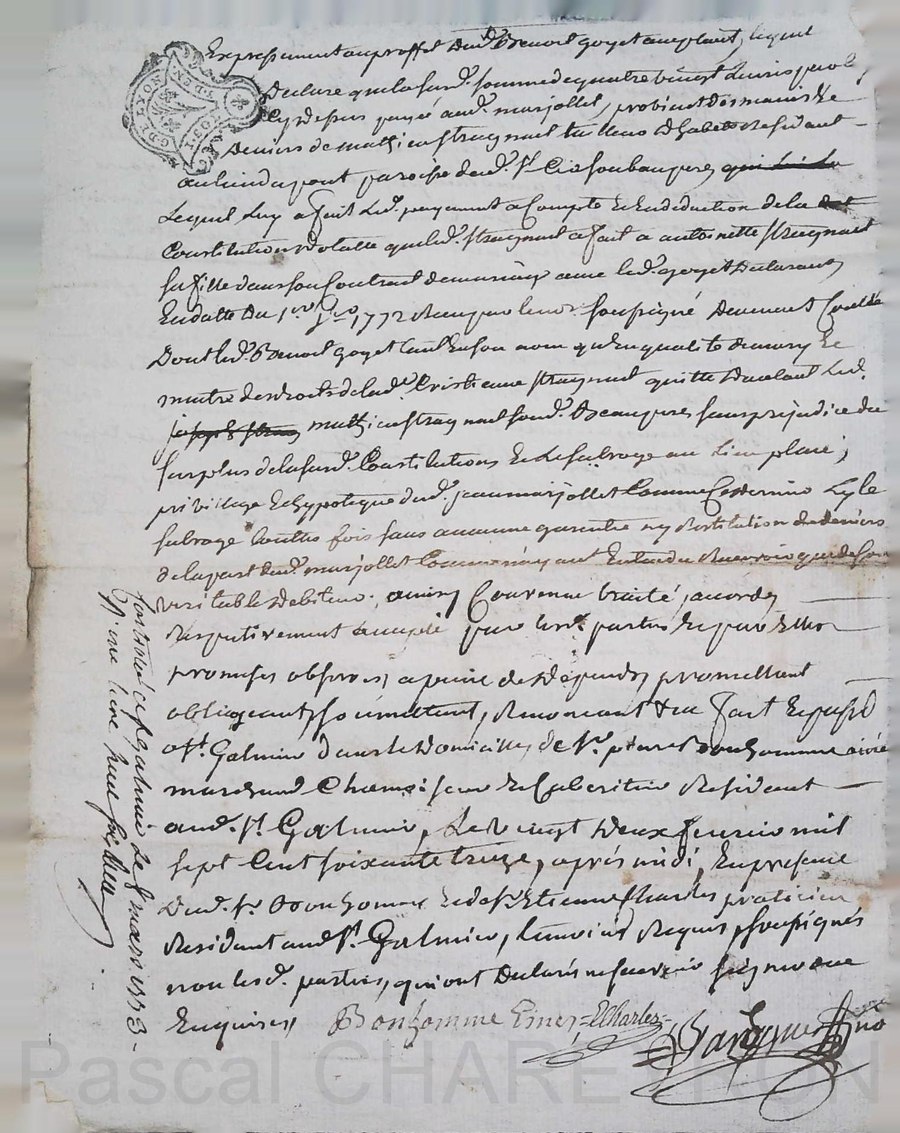 Expressement au proffit dud. Benoit goyet acceptant, lequel
Declare que la susd. somme de quatre vingt livres par luy
Cy depuis payée aud. marjollet, provient des mains &
Deniers de mathieu stragnart habitant Residant
au lieu du pont paroisse dud. St.
Lequel luy a fait led. payement a Compte & En deduction de la
Constitution dotalle que led. stragnart a fait a antoinette stragnart
sa fille dans son Contrat de mariage avec led. goyet Declarant
En datte du 1er 1772 Reçu par le no.re soussigné Deuement Conterollé
Dont led. Benoit goyet tant En son nom qu'En qualité de mary &
maitre des droits de lad. stragnart quitte d'autant led.
mathieu stragnart son d. Beaupere, sans prejudice du
surplus de la susd. Constitution & Le subroge au lieu place,
privillege & hypoteque dud. jean marjollet Comme Ce dernier Ly le
subroge toutte fois sans aucunne garentie ny Restitution de deniers
de la part dud. marjollet Comme n'ayant Entendu Recevoir que de son
veritable debiteur, ainsy Convenu traité, accordé,
Respectivement accepté par les parties & par Elles
promises observer, a peine de tous depends, promettant
obligeant, soumettant, Renonçant & a fait & passé
a St. Galmier dans le Domicille de Sr. pierre Bonhomme ainé
marchand Chamoiseur & Cabaretier Resident
aud. St. Galmier, Le vingt Deux fevrier mil
sept Cent soixante treize, aprés midi, En presence
Dud. Sr. Bonhomme & de Sr. Etienne Charles praticien
Residant aud. St. Galmier, temoins Requis, soussignés
non lesd. parties, qui ont Declaré ne sçavoir signer de ce
Enquises,
Bonhomme Ainé
E Charles
Contrôlé a St galmier Le 8 mars 1773
Reçu une livre neuf sols
G DE LYON
Pascal CHARETTON